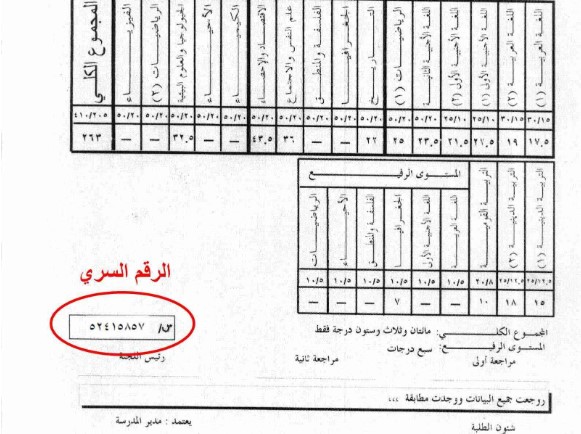 اللغة العربية (١)
اللغة العربية (٢)
اللغة الأجنبية الأولى (١)
اللغة الأجنبية الأولى (٢)
اللغة الأجنبية الثانية
الرياضيات (١)
التاريخ
الجغرافيا
الفلسفة والمنطق
علم النفس والاجتماع
الاقتصاد والإحصاء
الكيمياء
الأحياء
الجيولوجيا والعلوم البيئية
الرياضيات (٢)
الفيزياء
المجموع الكلي
٣٠/١٥ ٣٠/١٥ ٢٥/١٠ ٢٥/١٠ ٥٠/٢٠ ٥٠/٢٠ ٥٠/٢٠ ٥٠/٢٠ ٥٠/٢٠ ٥٠/٢٠ ٥٠/٢٠ ٥٠/٢٠ ٥٠/٢٠ ٥٠/٢٠ ٥٠/٢٠ ٥٠/٢٠ ٤١٠/٢٠٥
١٧.٥ ١٩ ٢١.٥ ٢٣.٥ ٢٥ ٢٢ — — ٣٦ ٤٣.٥ — — ٣٢.٥ — — ٢٦٣
المستوى الرفيع
التربية الدينية (١)
التربية الدينية (٢)
التربية القومية
اللغة العربية
اللغة الأجنبية الأولى
الجغرافيا
الفلسفة والمنطق
الأحياء
الرياضيات
٢٥/١٢.٥ ٢٥/١٢.٥ ٢٠/٨ ١٠/٥ ١٠/٥ ١٠/٥ ١٠/٥ ١٠/٥ ١٠/٥
١٥ ١٨ ١٠ — — ٧ — — —
الرقم السري
س/ ٥٢٤١٥٨٥٧
المجموع الكلي: مائتان وثلاث وستون درجة فقط
المستوى الرفيع: سبع درجات
مراجعة أولى مراجعة ثانية رئيس اللجنة
روجعت جميع البيانات ووجدت مطابقة ,,,
شئون الطلبة يعتمد : مدير المدرسة